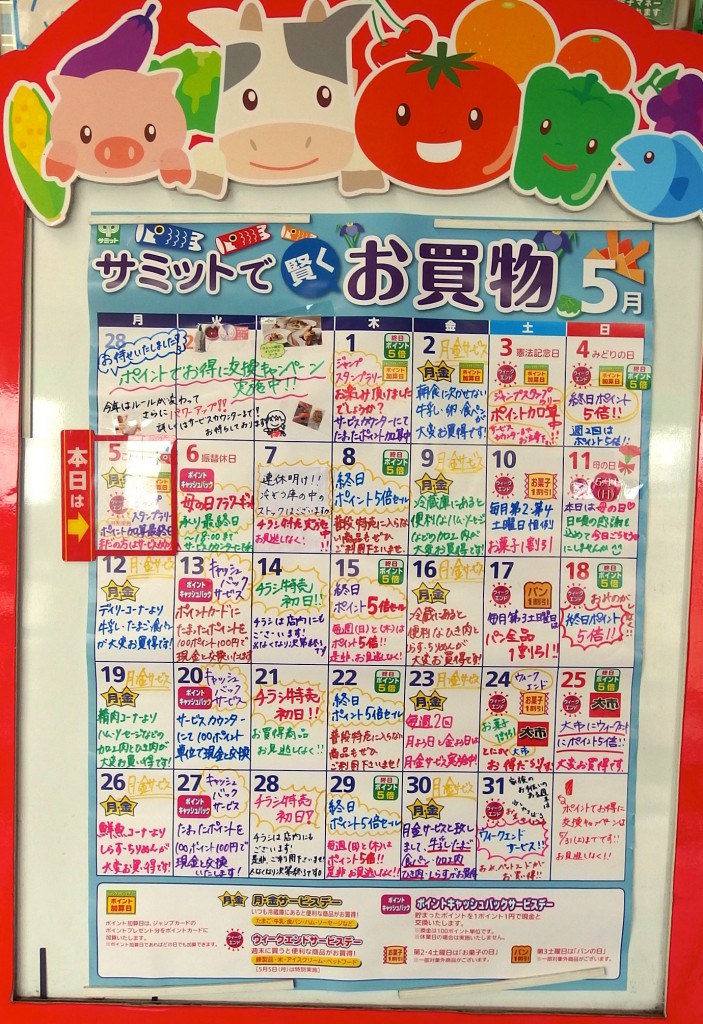 サミット
サミットで賢くお買物 5月
月 火 木 金 土 日
28
お待せいたしました!
ポイントでお得に交換キャンペーン
実施中!!
今年はルールが変わって
さらにパワーアップ!!
詳しくはサービスカウンターまで!
お待ちしております
1
終日
ポイント
5倍
ポイント
加算日
ジャンプ
スタンプラリー
お楽しみ頂けまし
たでしょうか?
サービスカウンターにて
たまったポイント加算中
2
月金サービス
月金
朝食に欠かせない
牛乳・卵・食パン
大変お買得です!
3
憲法記念日
ウィーク
エンド
ポイント
加算日
ジャンプスタンプラリー
ポイント加算
4
みどりの日
ウィーク
エンド
ポイント
加算日
終日ポイント
5倍!!
週2回は
ポイント5倍!!
本日は
5
スタンプ
ラリー
ポイント加算最終日
6
振替休日
ポイント
キャッシュバック
母の日フラワーギフト
承り最終日
18:00まで
サービスカウンターにて
7
連休明け!!
冷ぞう庫の中の
ストックはございますか
チラシ特売実施中
お見逃しなく!
8
終日
ポイント
5倍
終日
ポイント5倍セール
普段特売に入らない
商品もぜひ
ご利用下さいませ。
9
月金サービス
月金
冷蔵庫にあると
便利なハム・ソーセージ
などの加工肉が
大変お買得です!
10
ウィーク
エンド
お菓子
1割引
毎月第2・第4
土曜日恒例
お菓子1割引
11
母の日
本日は母の日
日頃の感謝を
込めて今日ごちそう
にしませんか
12
月金サービス
月金
デイリーコーナーより
牛乳・たまご・食パン
が大変お買得です!
13
キャッシュ
バック
サービス
ポイント
キャッシュバック
ポイントカードに
たまったポイントを
100ポイント100円で
現金と交換いたします
14
チラシ特売
初日!!
チラシは店内にも
ございます!
15
終日
ポイント
5倍
終日
ポイント5倍セール
毎週(日)と(木)は
ポイント5倍!!
是非お見逃しなく!
16
月金サービス
月金
冷蔵にあると
便利なひき肉と
しらす・ちりめんが
大変お買得です!
17
ウィーク
エンド
パン
1割引
毎月第3土曜日は
パン全品
1割引!!
18
終日
ポイント
5倍
ウィーク
エンド
終日ポイント
5倍!!
19
月金サービス
月金
精肉コーナーより
ハム・ソーセージなどの
加工肉とひき肉が
大変お買得です!
20
キャッシュ
バック
サービス
ポイント
キャッシュバック
サービスカウンター
にて100ポイント
単位で現金と交換
21
チラシ特売
初日!!
お買得商品
お見逃しなく!!
22
終日
ポイント
5倍
終日
ポイント5倍セール
普段特売に入らない
商品もぜひ
ご利用下さいませ!
23
月金サービス
月金
毎週2回
月よう日と金よう日は
月金サービス実施中!
24
ウィークエンド
ウィーク
エンド
お菓子
1割引
大市
とにかく大市
お得だらけ!!
25
終日
ポイント
5倍
ウィーク
エンド
大市
大市にウィークエンド
にポイント5倍!!
大変お買得です。
26
月金サービス
月金
鮮魚コーナーより
しらす・ちりめんが
大変お買得です!
27
キャッシュ
バック
サービス
ポイント
キャッシュバック
たまったポイントを
100ポイント100円で
現金と交換
いたします!
28
チラシ特売
初日!!
チラシは店内にも
ございます!
29
終日
ポイント
5倍
終日
ポイント5倍セール
毎週(日)と(木)は
ポイント5倍!!
是非お見逃しなく!
30
月金サービス
月金
月金サービスと致し
まして、牛乳・たまご
食パン・加工肉
ひき肉・しらすがお買得
31
ウィーク
エンド
ウィークエンド
サービス!!
1
ポイントでお得に
交換キャンペーンは
5/31(土)までです!!
お見逃しなく!!
ポイント
加算日
ポイント加算日は、ジャンプカードの
ポイントプレゼント分をポイントカードに
加算いたします。
※ポイント加算日であればどの日でも加算できます。
月金 月・金サービスデー
いつも冷蔵庫にあると便利な商品がお買得!
たまご・牛乳・食パン・ハム・ソーセージなど
ウィーク
エンド
ウィークエンドサービスデー
週末に買うと便利な商品がお買得!
練製品・米・アイスクリーム・ペットフード
[5月5日(月)は特別実施]
ポイント
キャッシュバック
ポイントキャッシュバックサービスデー
貯まったポイントを1ポイント1円で現金と
交換いたします。
※現金は100ポイント単位です。
※休業日の場合は実施いたしません。
お菓子
1割引
第2・4土曜日は「お菓子の日」
※一部対象外商品がございます。
パン
1割引
第3土曜日は「パンの日」
※一部対象外商品がございます。